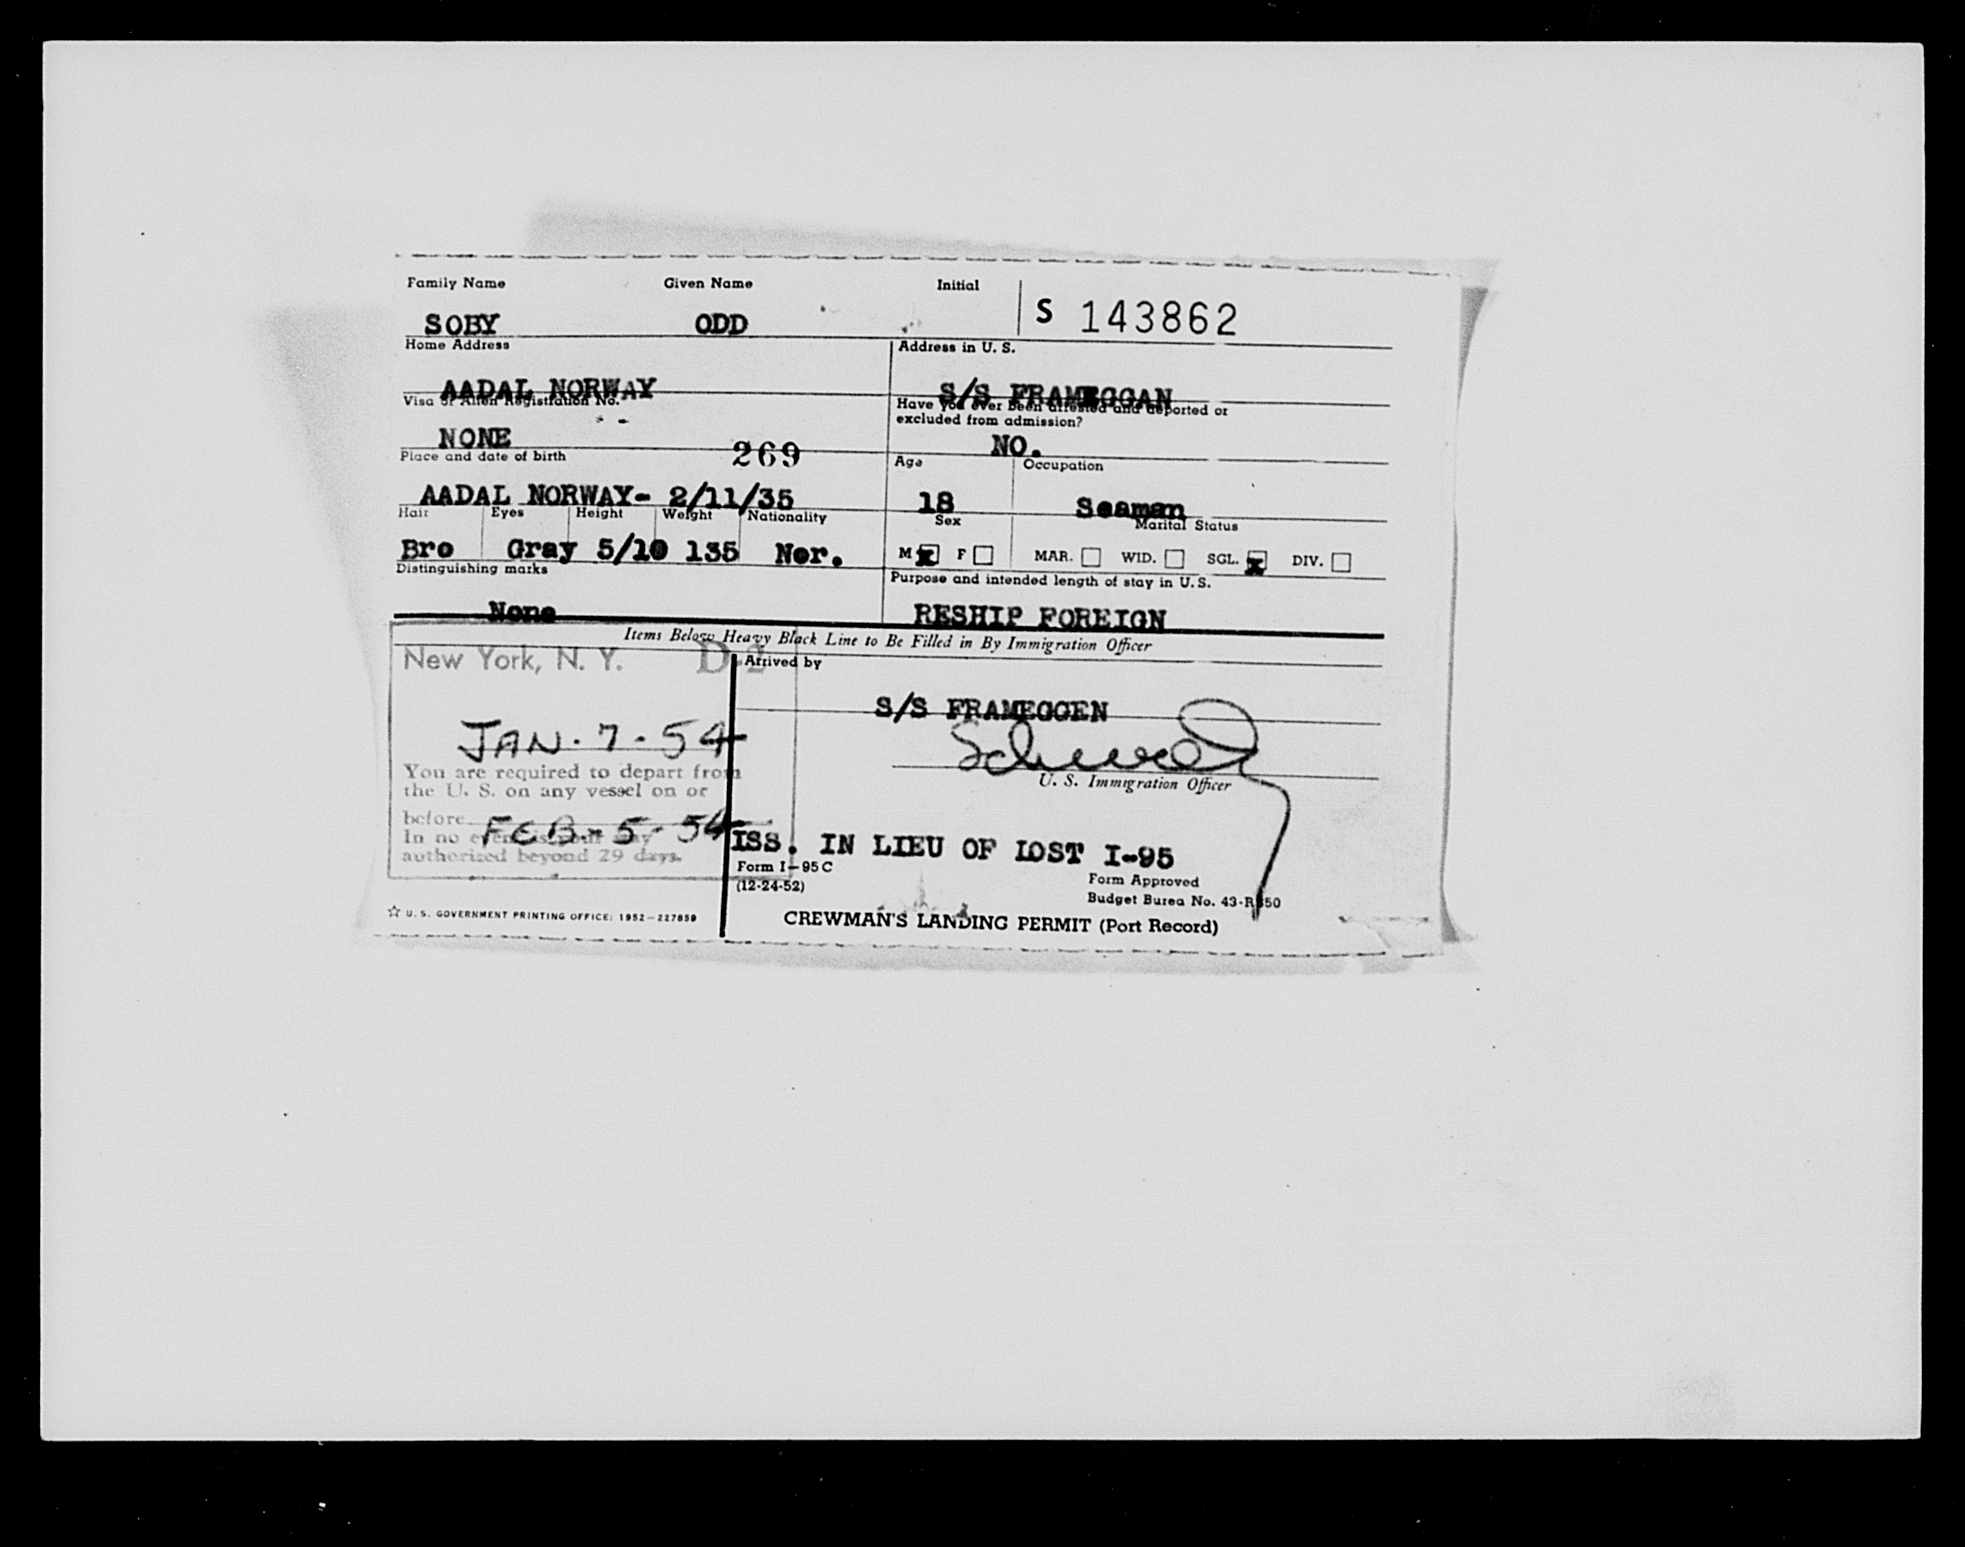 Family Name Given Name Initial
SOBY ODD S 143862
Home Address Address in U. S.
AADAL NORWAY S/S FRAMEGGAN
Visa or Alien Registration No. Have you ever been arrested and deported or
excluded from admission?
NONE NO.
Place and date of birth 269 Age Occupation
AADAL NORWAY- 2/11/35 18 Seaman
Hair Eyes Height Weight Nationality Sex Marital Status
Bro Gray 5/10 135 Nor. M x F MAR. WID. SGL. x DIV.
Distinguishing marks Purpose and intended length of stay in U. S.
None RESHIP FOREIGN
Items Below Heavy Black Line to Be Filled in By Immigration Officer
New York, N. Y. D-2 Arrived by
S/S FRAMEGGEN
JAN. 7 - 54
You are required to depart from
the U. S. on any vessel on or U. S. Immigration Officer
before FEB - 5 - 54
In no event is your stay
authorized beyond 29 days.
ISS. IN LIEU OF LOST I-95
Form I-95 C Form Approved
(12-24-52) Budget Burea No. 43-R
☆ U. S. GOVERNMENT PRINTING OFFICE: 1952—227859 CREWMAN'S LANDING PERMIT (Port Record)